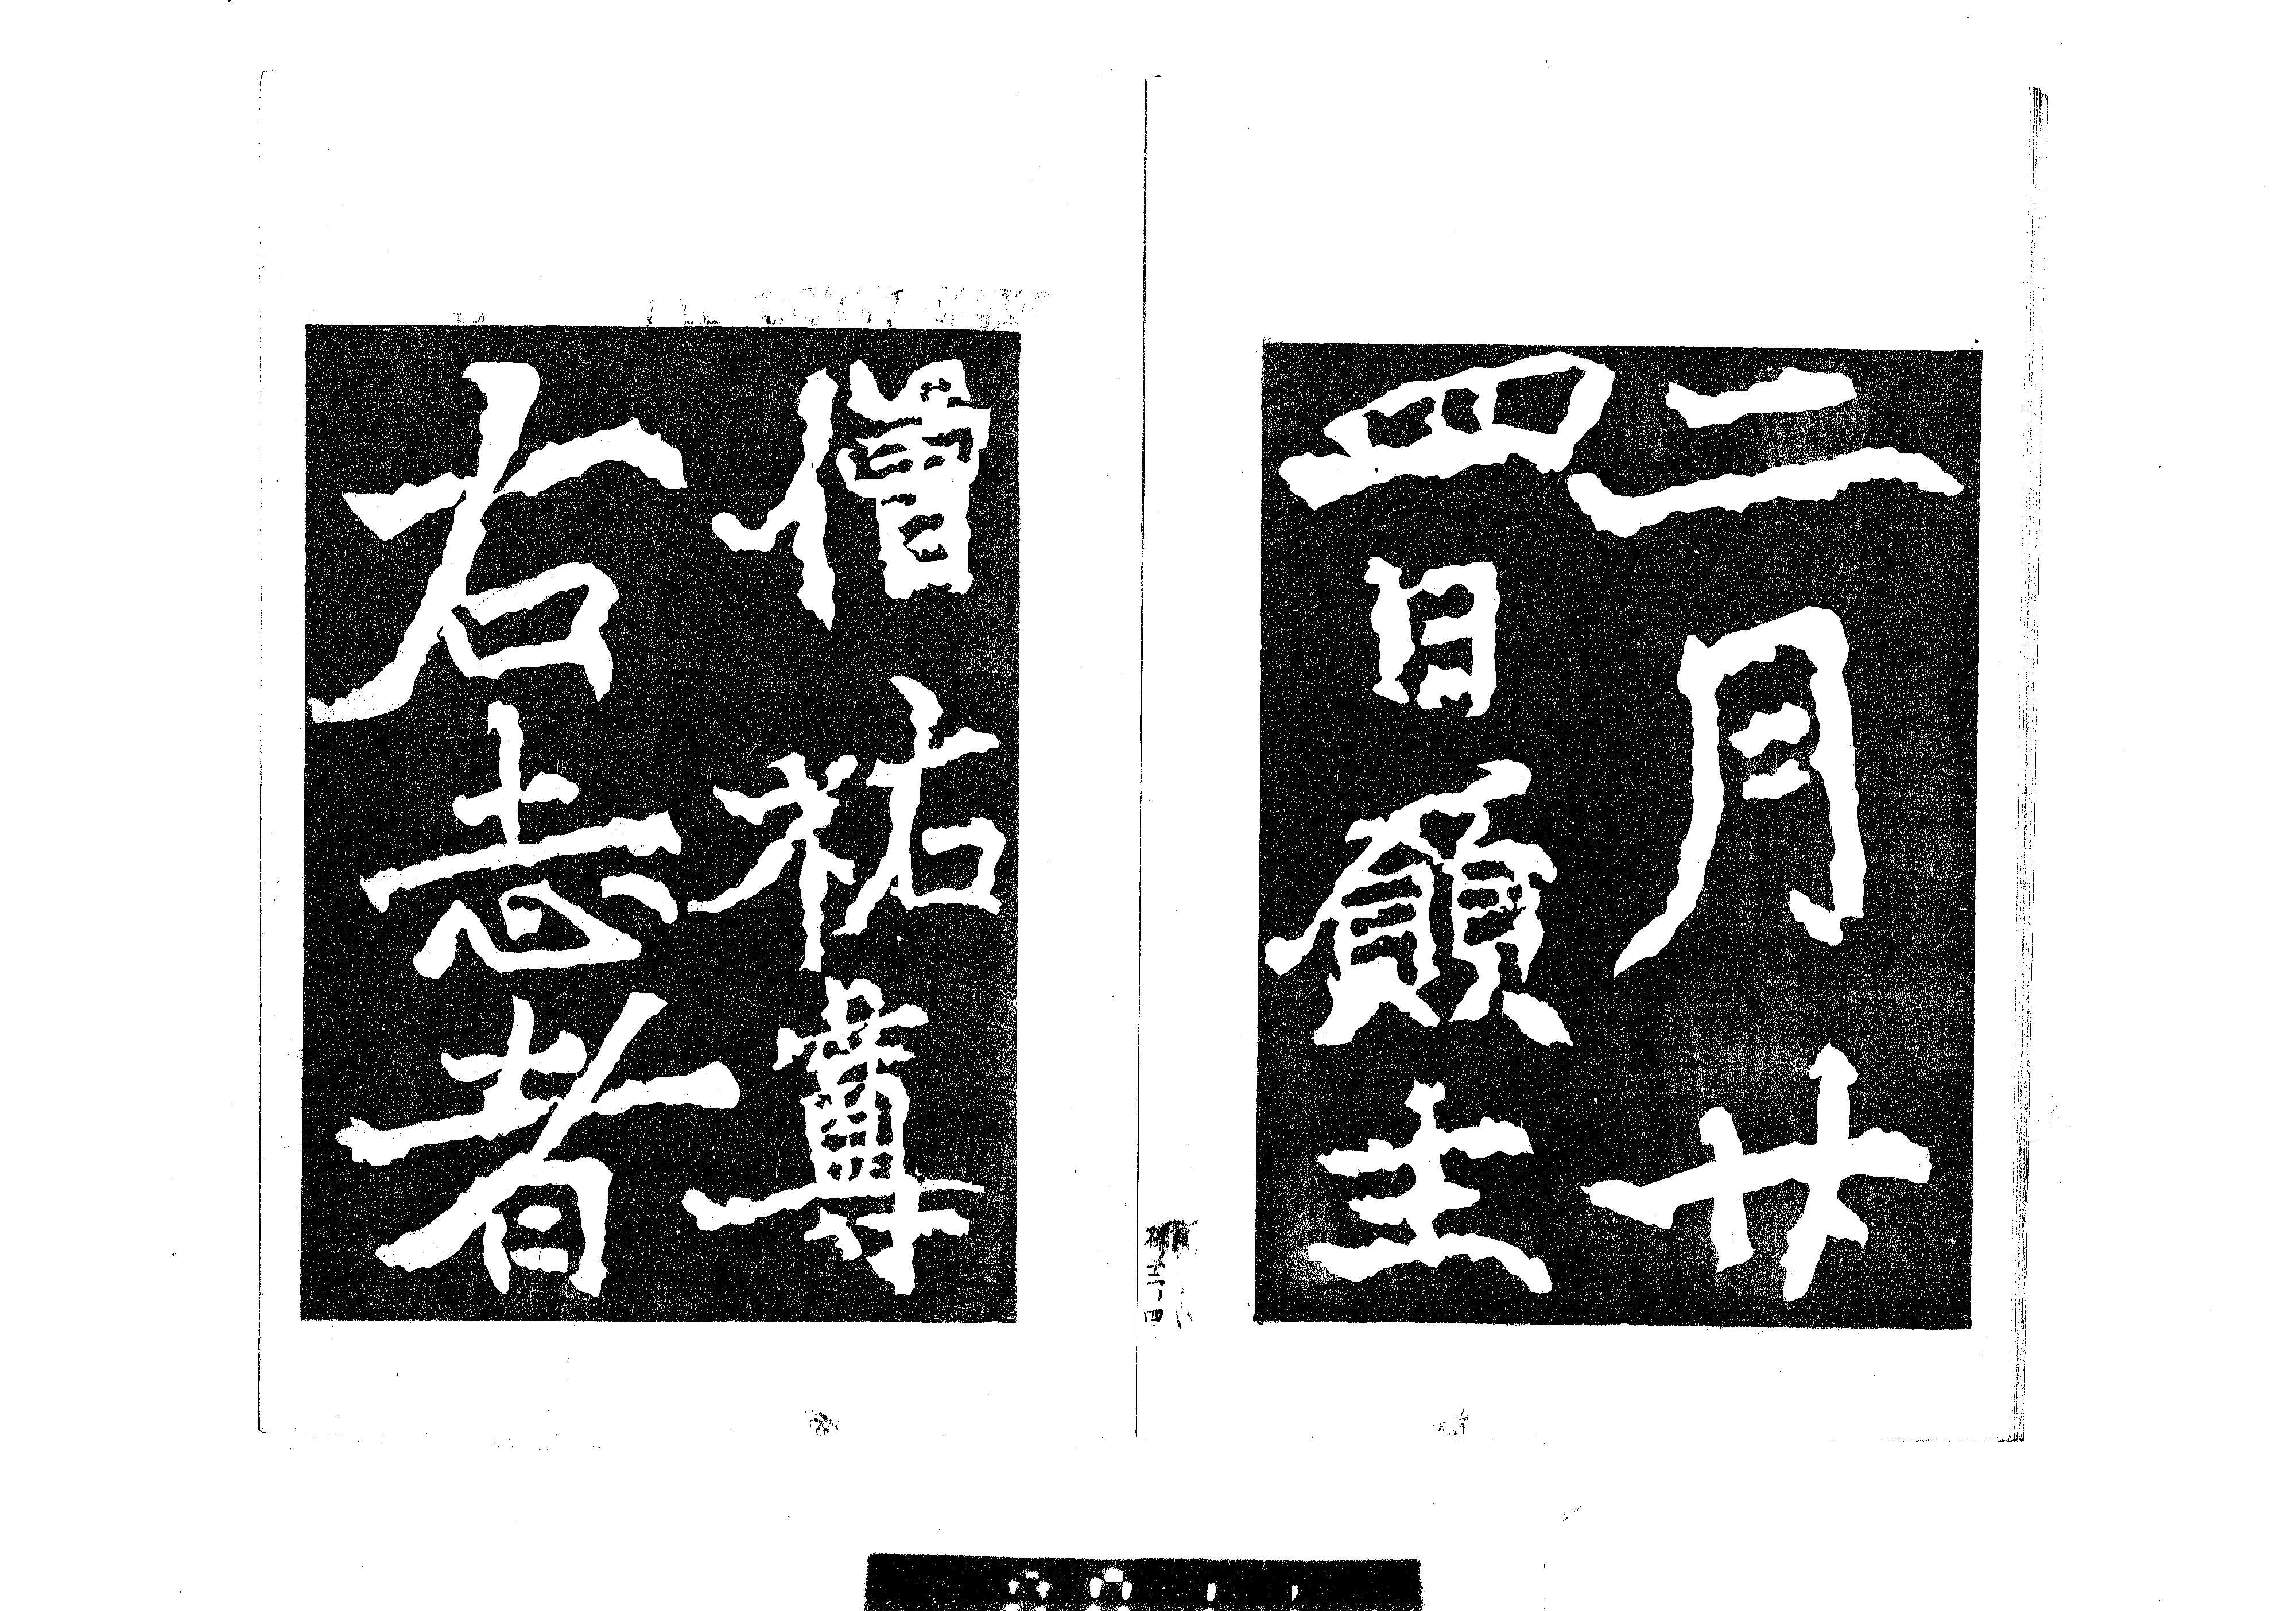 二月廿
四日願主
僧祐尊
右志者